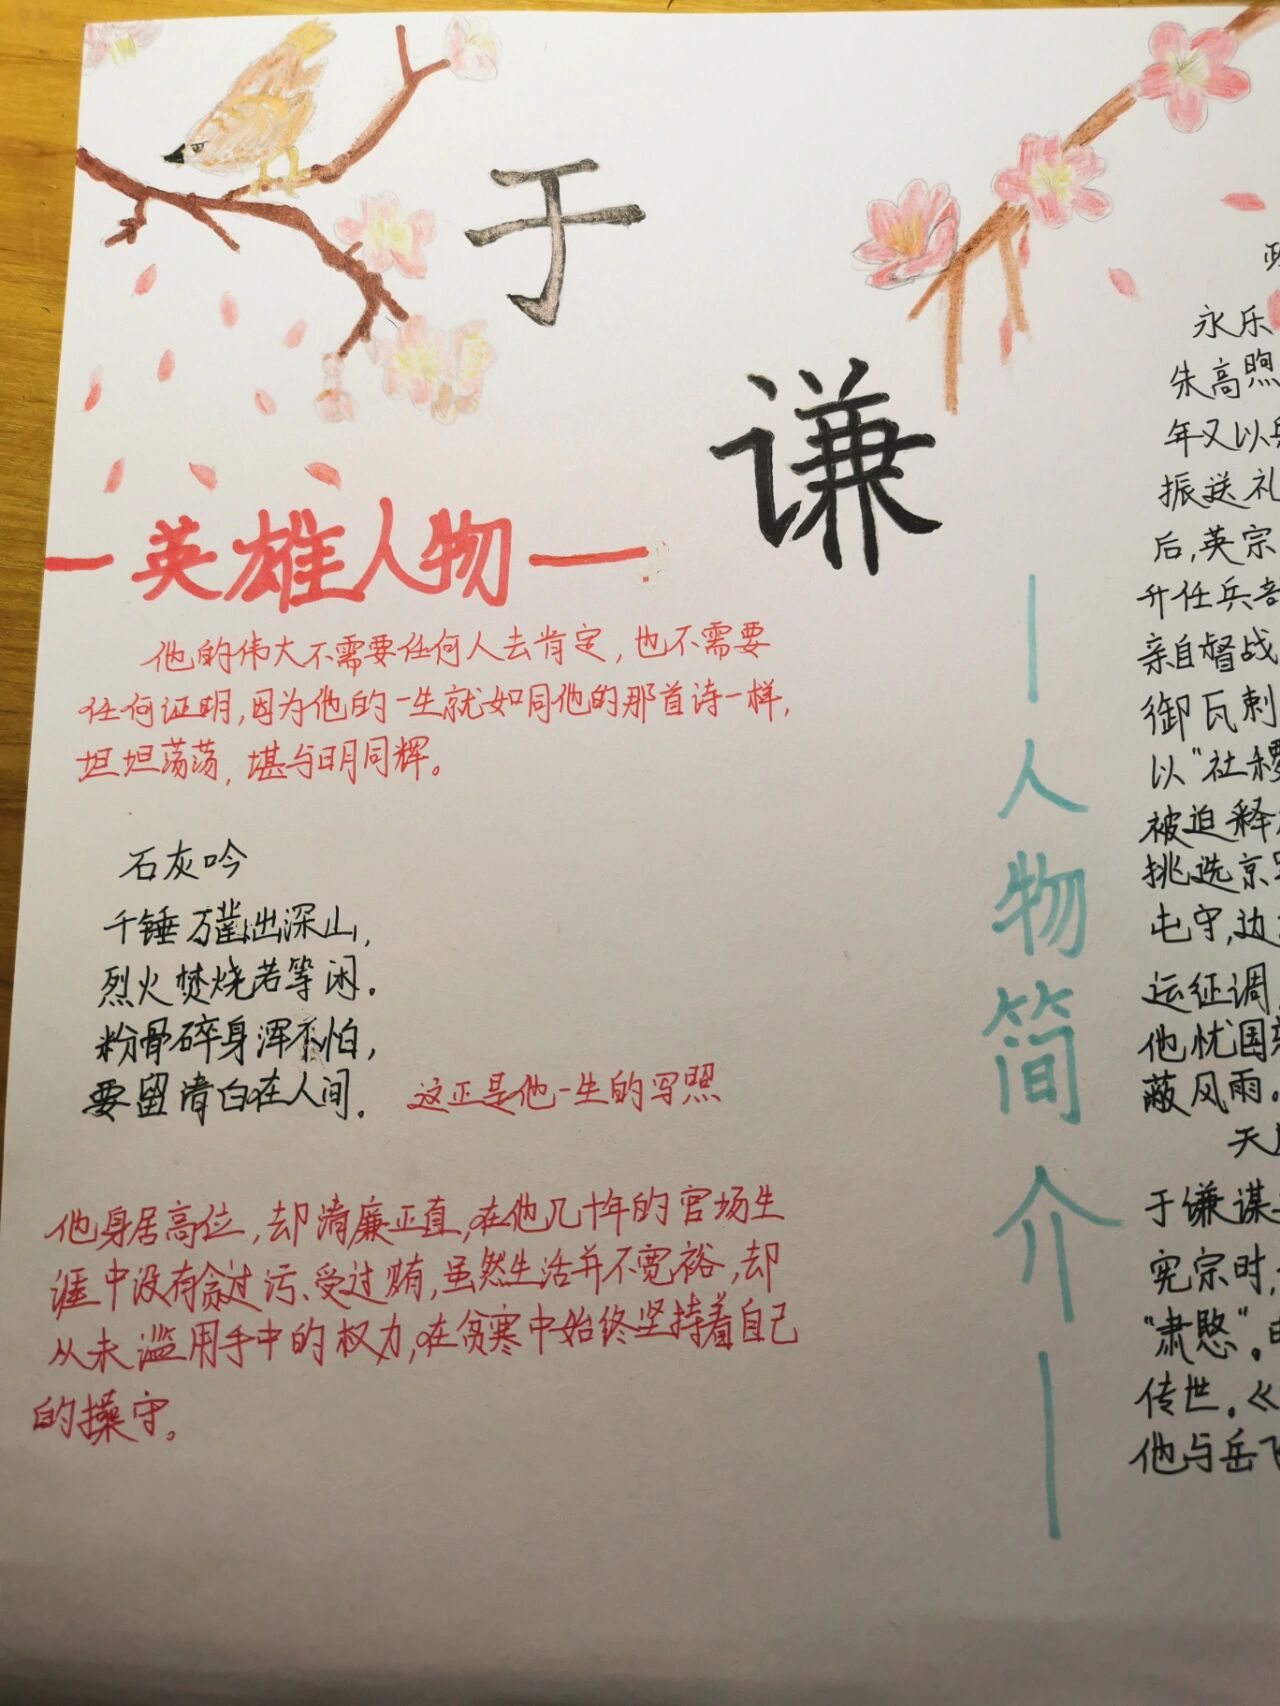 于
谦
英雄人物
他的伟大不需要任何人去肯定，也不需要
任何证明，因为他的一生就如同他的那首诗一样，
坦坦荡荡，堪与日月同辉。
石灰吟
千锤万凿出深山，
烈火焚烧若等闲。
粉骨碎身浑不怕，
要留清白在人间。 这正是他一生的写照
他身居高位，却清廉正直，在他几十年的官场生
涯中没有贪过污、受过贿，虽然生活并不宽裕，却
从未滥用手中的权力，在贫寒中始终坚持着自己
的操守。
人物简介
永乐
朱高煦
年又以兵
振送礼
后，英宗
升任兵部
亲自督战
御瓦剌
以“社稷
被迫释
挑选京
屯守，边
运征调，
他忧国
蔽风雨。
天
于谦谋
宪宗时，
“肃愍”。
传世。《
他与岳飞